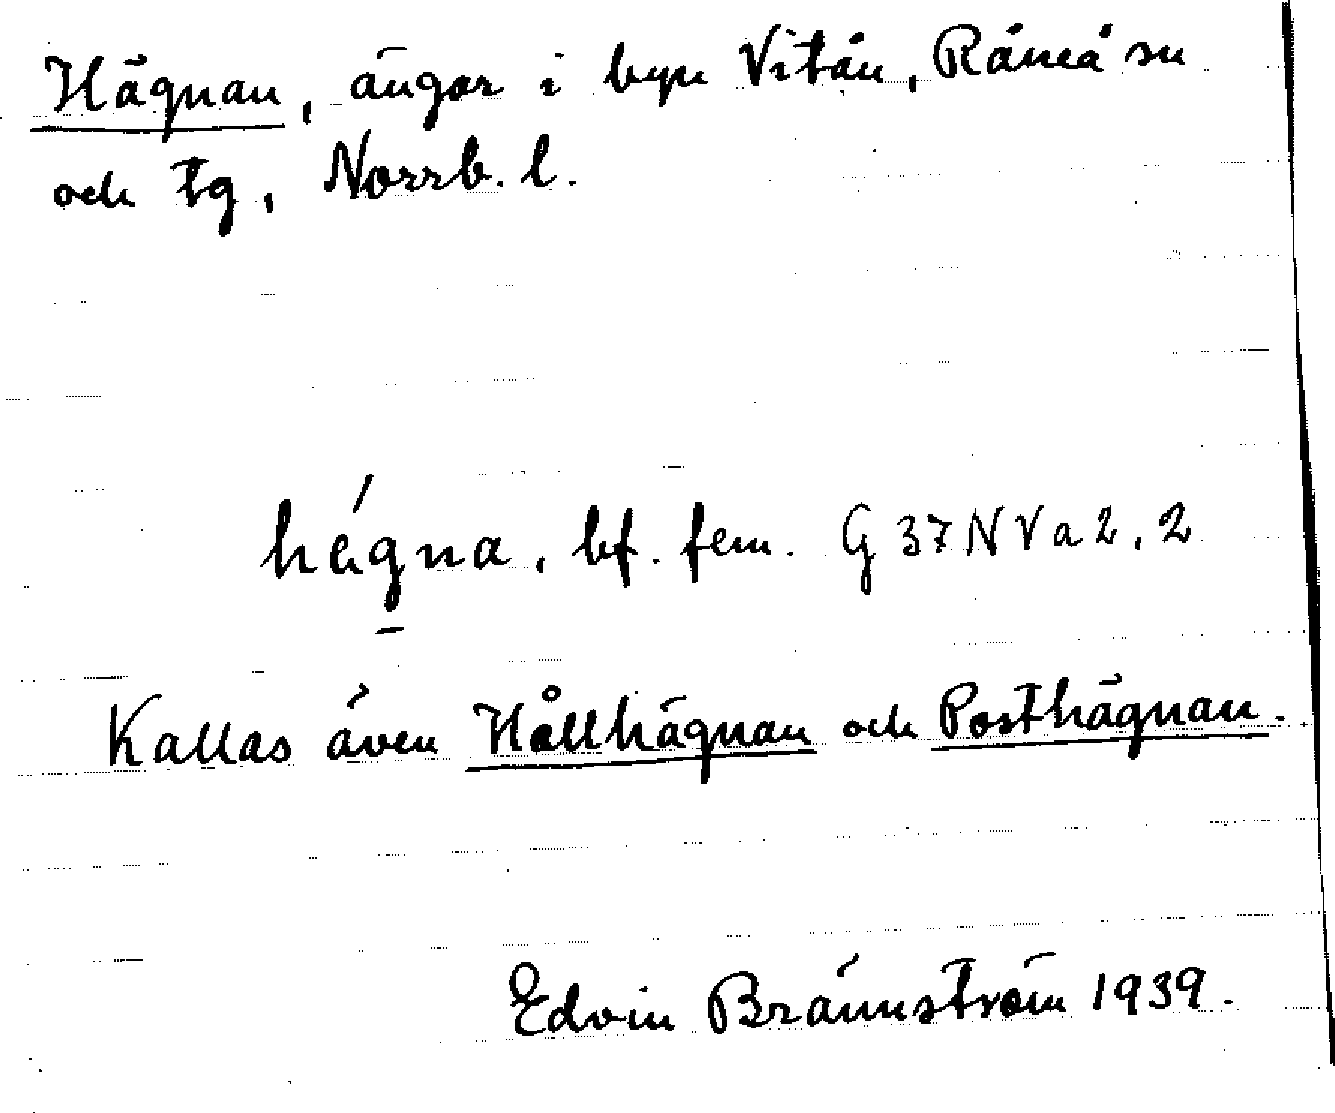 Hägnan, ängar i byn Vitån, Råneå sn
och tg, Norrb. l.
hägna, bf. fem. G 37 N V a 2, 2
Kallas även Hållhägnan och Posthägnan.
Edvin Brännström 1939.